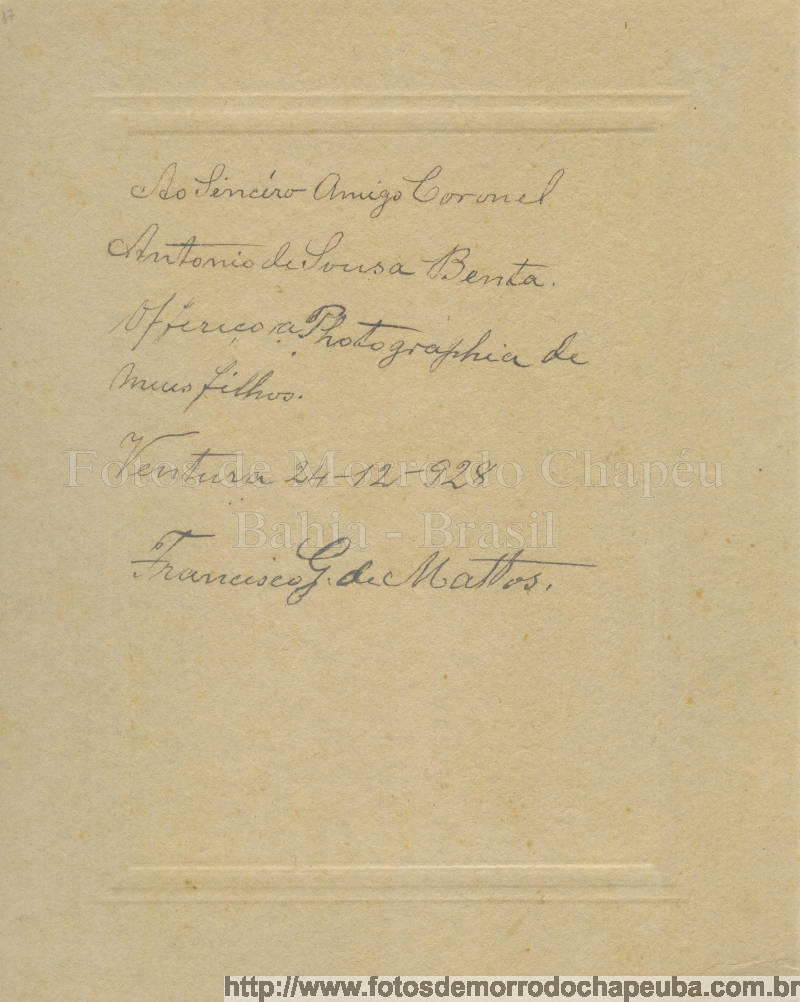 17
Ao Sincéro Amigo Coronel
Antonio de Sousa Benta.
Offereço a Photographia de
meus filhos.
Ventura 24-12-928
Fotos de Morro do Chapéu
Bahia - Brasil
Francisco G. de Mattos.
http://www.fotosdemorrodochapeuba.com.br